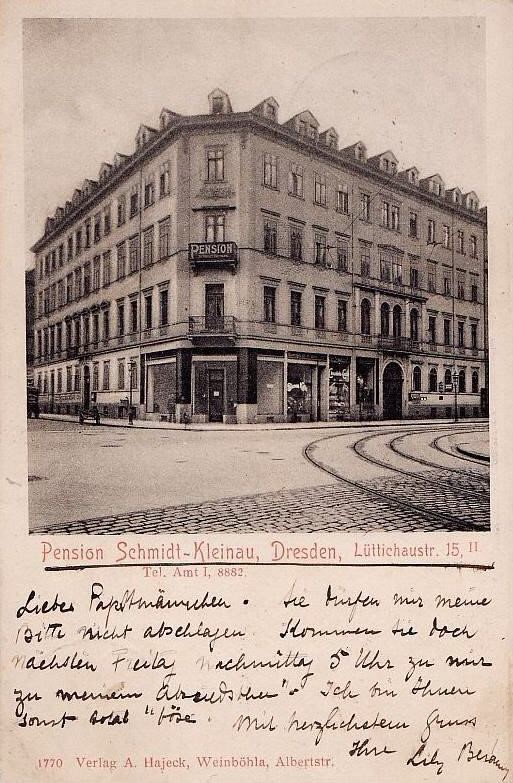 PENSION
Pension Schmidt-Kleinau, Dresden, Lüttichaustr. 15, II
Tel. Amt I, 8882.
Lieber Papstmännchen. Sie dürfen mir meine
Bitte nicht abschlagen. Kommen Sie doch
nächsten Freitag Nachmittag 5 Uhr zu mir
zu meinem Abschiedsthee"- Ich bin Ihnen
sonst total "böse. Mit herzlichstem Gruss
Ihre Lily
1770 Verlag A. Hajeck, Weinböhla, Albertstr.